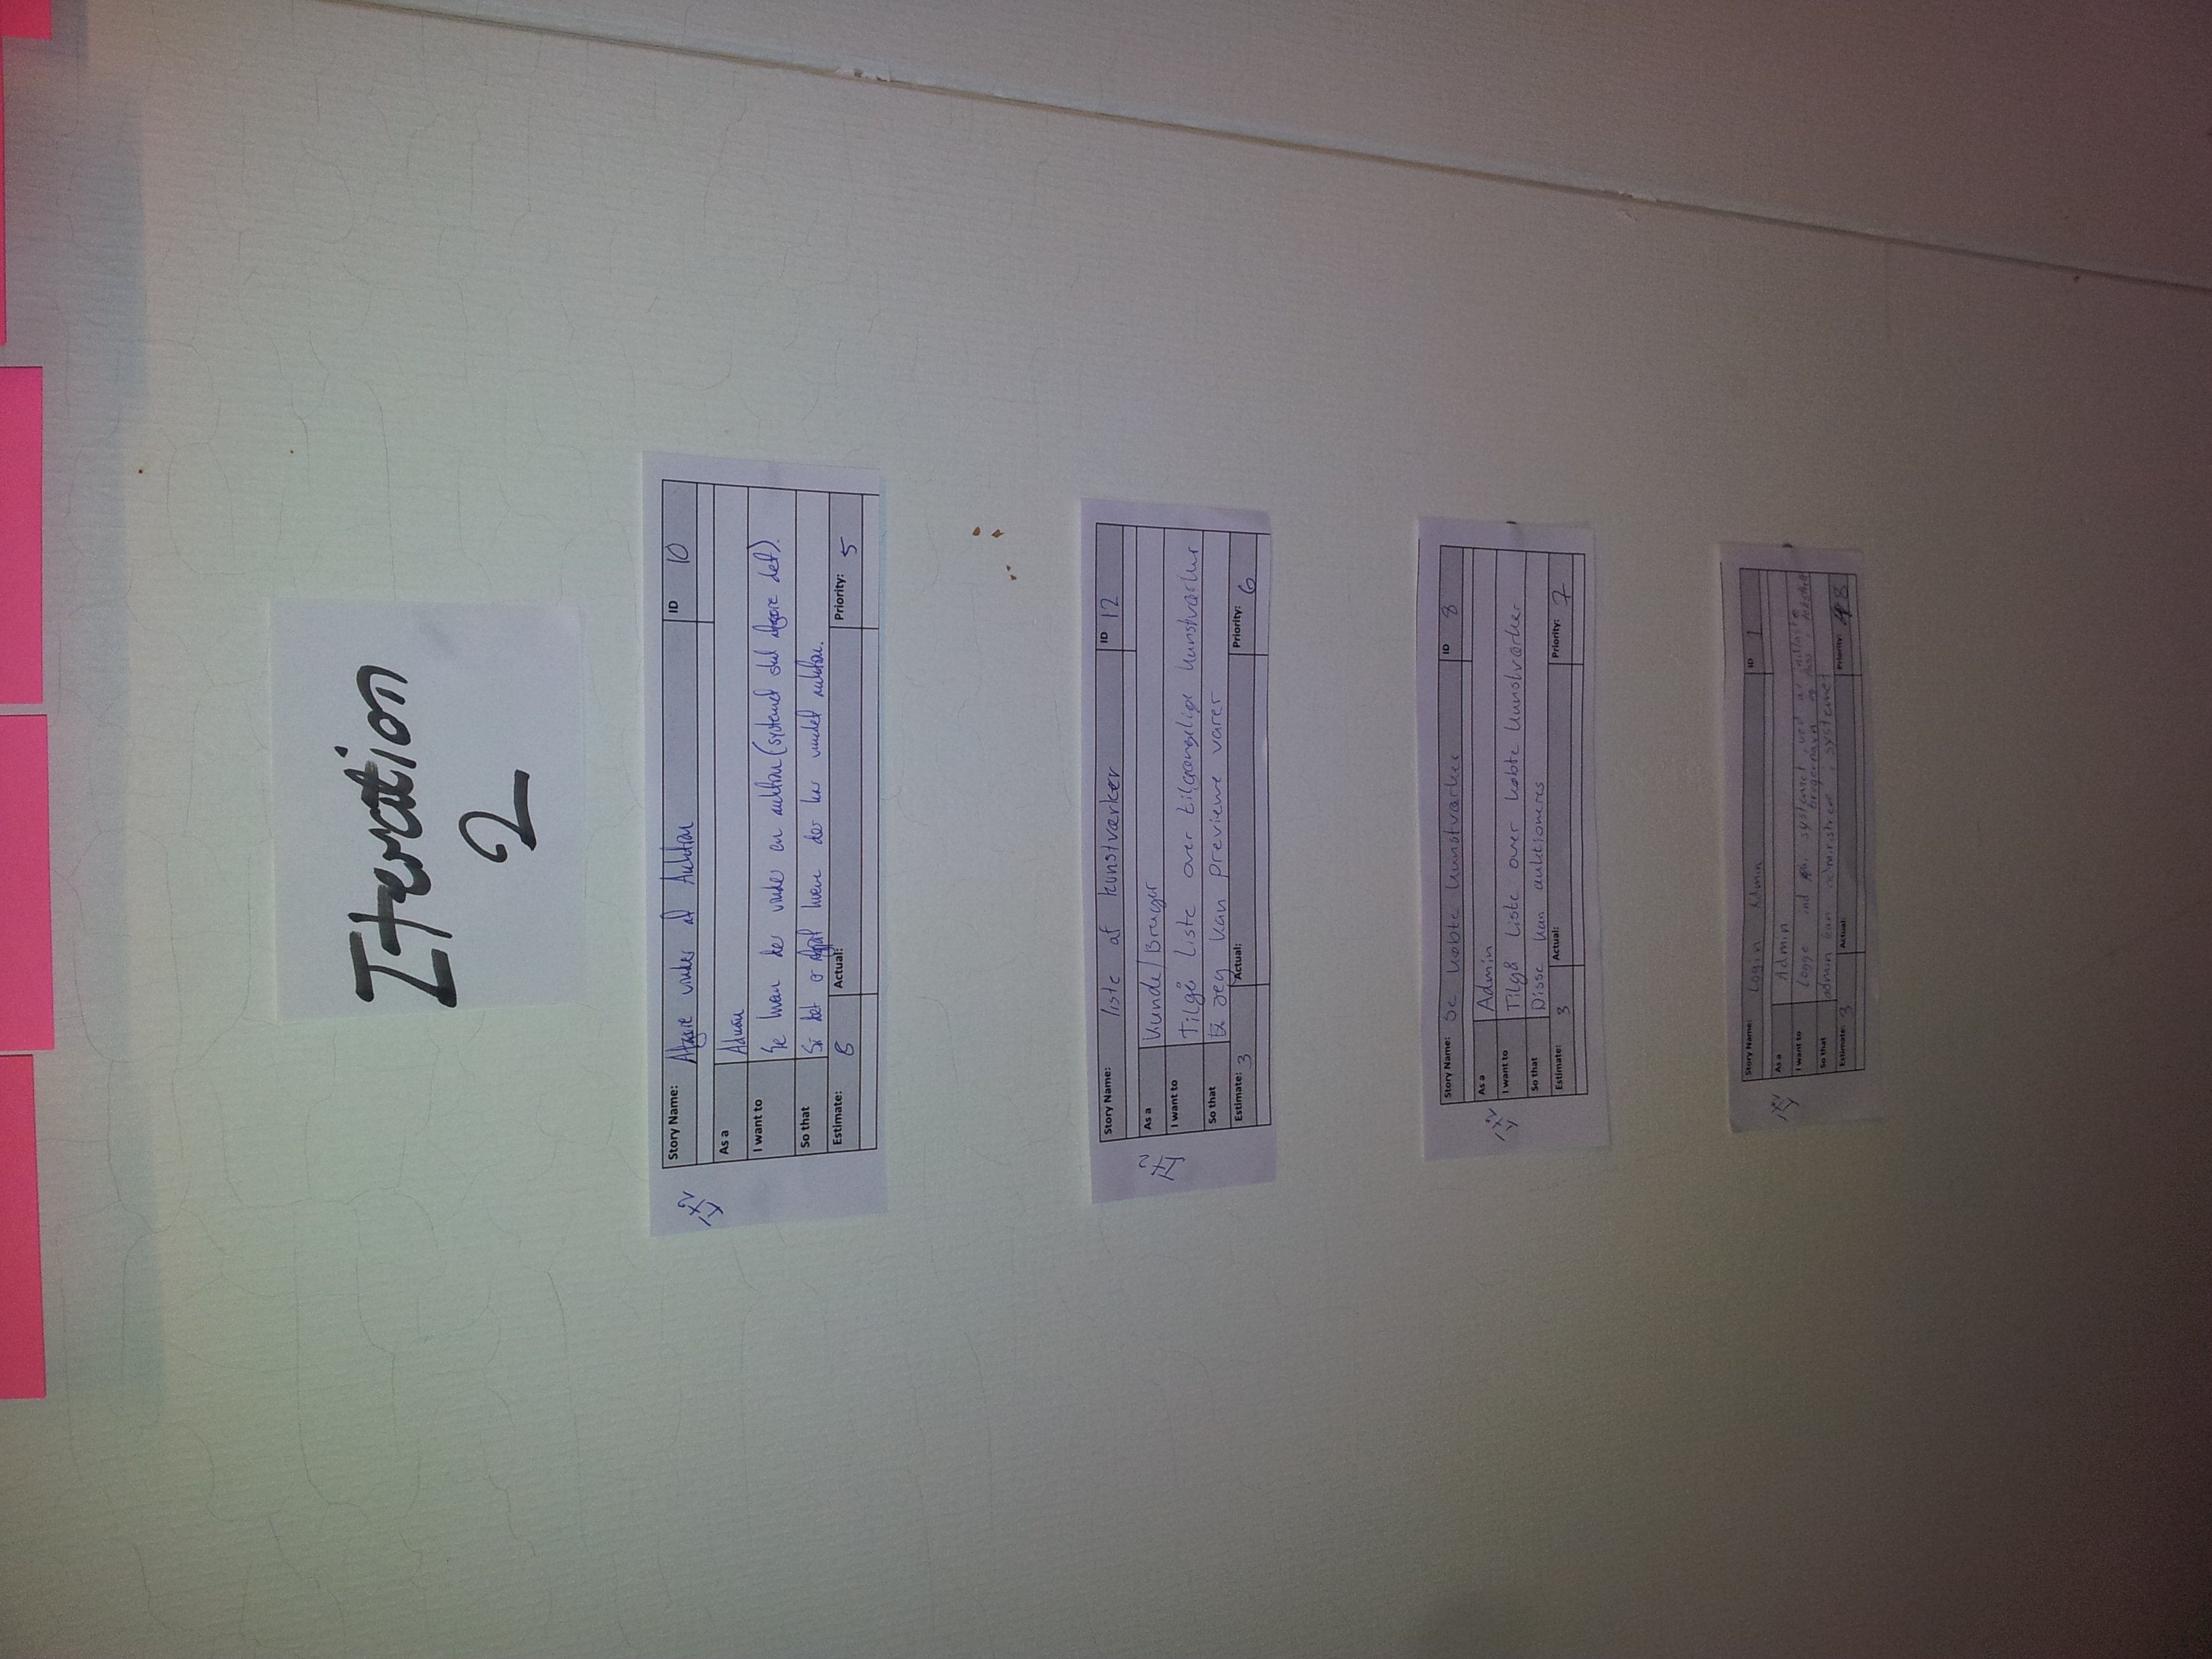 Iteration
2
It2
Story Name: Afgøre vinder af Auktion ID 10
As a Admin
I want to Se hvem der vinder en auktion (systemet skal afgøre det).
So that Så det er afgjort hvem der har vundet auktion.
Estimate: 8 Actual: Priority: 5
It2
Story Name: liste af kunstværker ID 12
As a Kunde/Bruger
I want to Tilgå liste over tilgængelige kunstværker
So that Jeg kan previewe varer
Estimate: 3 Actual: Priority: 6
It2
Story Name: Se købte kunstværker ID 8
As a Admin
I want to Tilgå liste over købte kunstværker
So that Disse kan auktioneres
Estimate: 3 Actual: Priority: 7
It2
Story Name: Login Admin ID 1
As a Admin
I want to Logge ind systemet ved at indtaste
brugernavn og pass i
So that admin kan administrere i systemet
Estimate: 3 Actual: Priority: 8